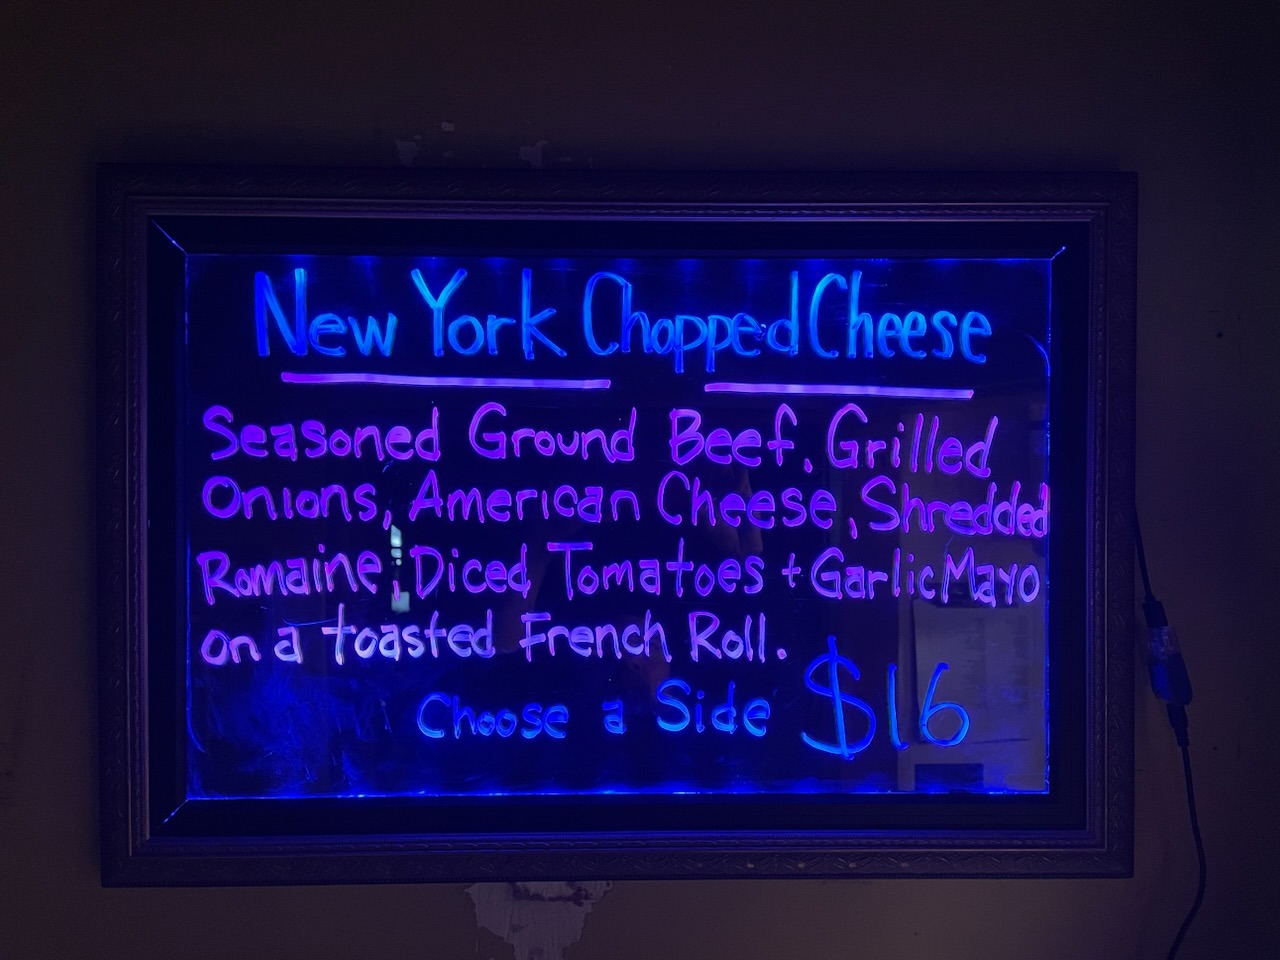 New York Chopped Cheese
Seasoned Ground Beef, Grilled
Onions, American Cheese, Shredded
Romaine, Diced Tomatoes + Garlic Mayo
on a toasted French Roll.
Choose a Side $16